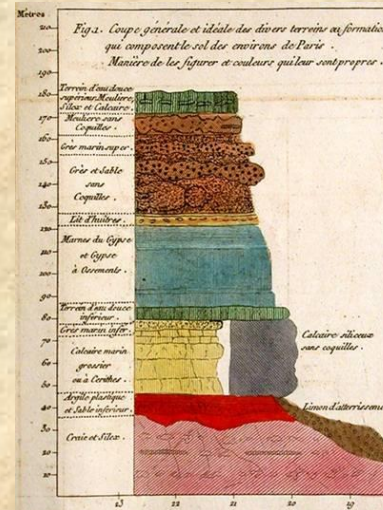 Mètres.
Fig. 1. Coupe générale et idéale des divers terreins ou formatio
qui composent le sol des environs de Paris.
Manière de les figurer et couleurs qui leur sont propres.
210
200
190
180
170
160
150
140
130
120
110
100
90
80
70
60
50
40
30
20
10
Terrein d'eau douce
supérieur, Meulière,
Silex et Calcaire.
Meulière sans
Coquilles.
Grès marin super.
Grès et Sable
sans
Coquilles.
Lit d'huitres.
Marnes du Gypse
et Gypse
à Ossements.
Terrein d'eau douce
inférieur.
Grès marin infer.
Calcaire marin
grossier
ou à Cerithes.
Argile plastique
et Sable inférieur.
Craie et Silex.
Calcaire siliceux
sans coquilles.
Limon d'atterrissem
23
22
21
20
19